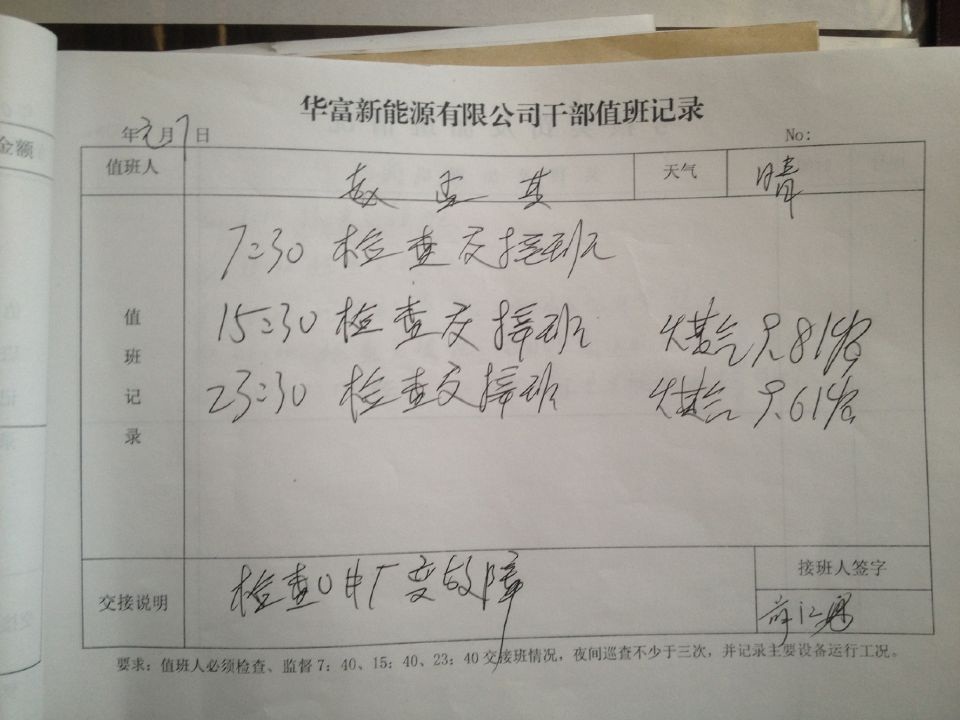 华富新能源有限公司干部值班记录
年元月7日 No:
值班人 赵孟其 天气 晴
值班记录
7:30 检查交接班
15:30 检查交接班 煤气9.81
23:30 检查交接班 煤气9.61
交接说明 检查 厂变故障
接班人签字
要求:值班人必须检查、监督7:40、15:40、23:40交接班情况,夜间巡查不少于三次,并记录主要设备运行工况。
金额